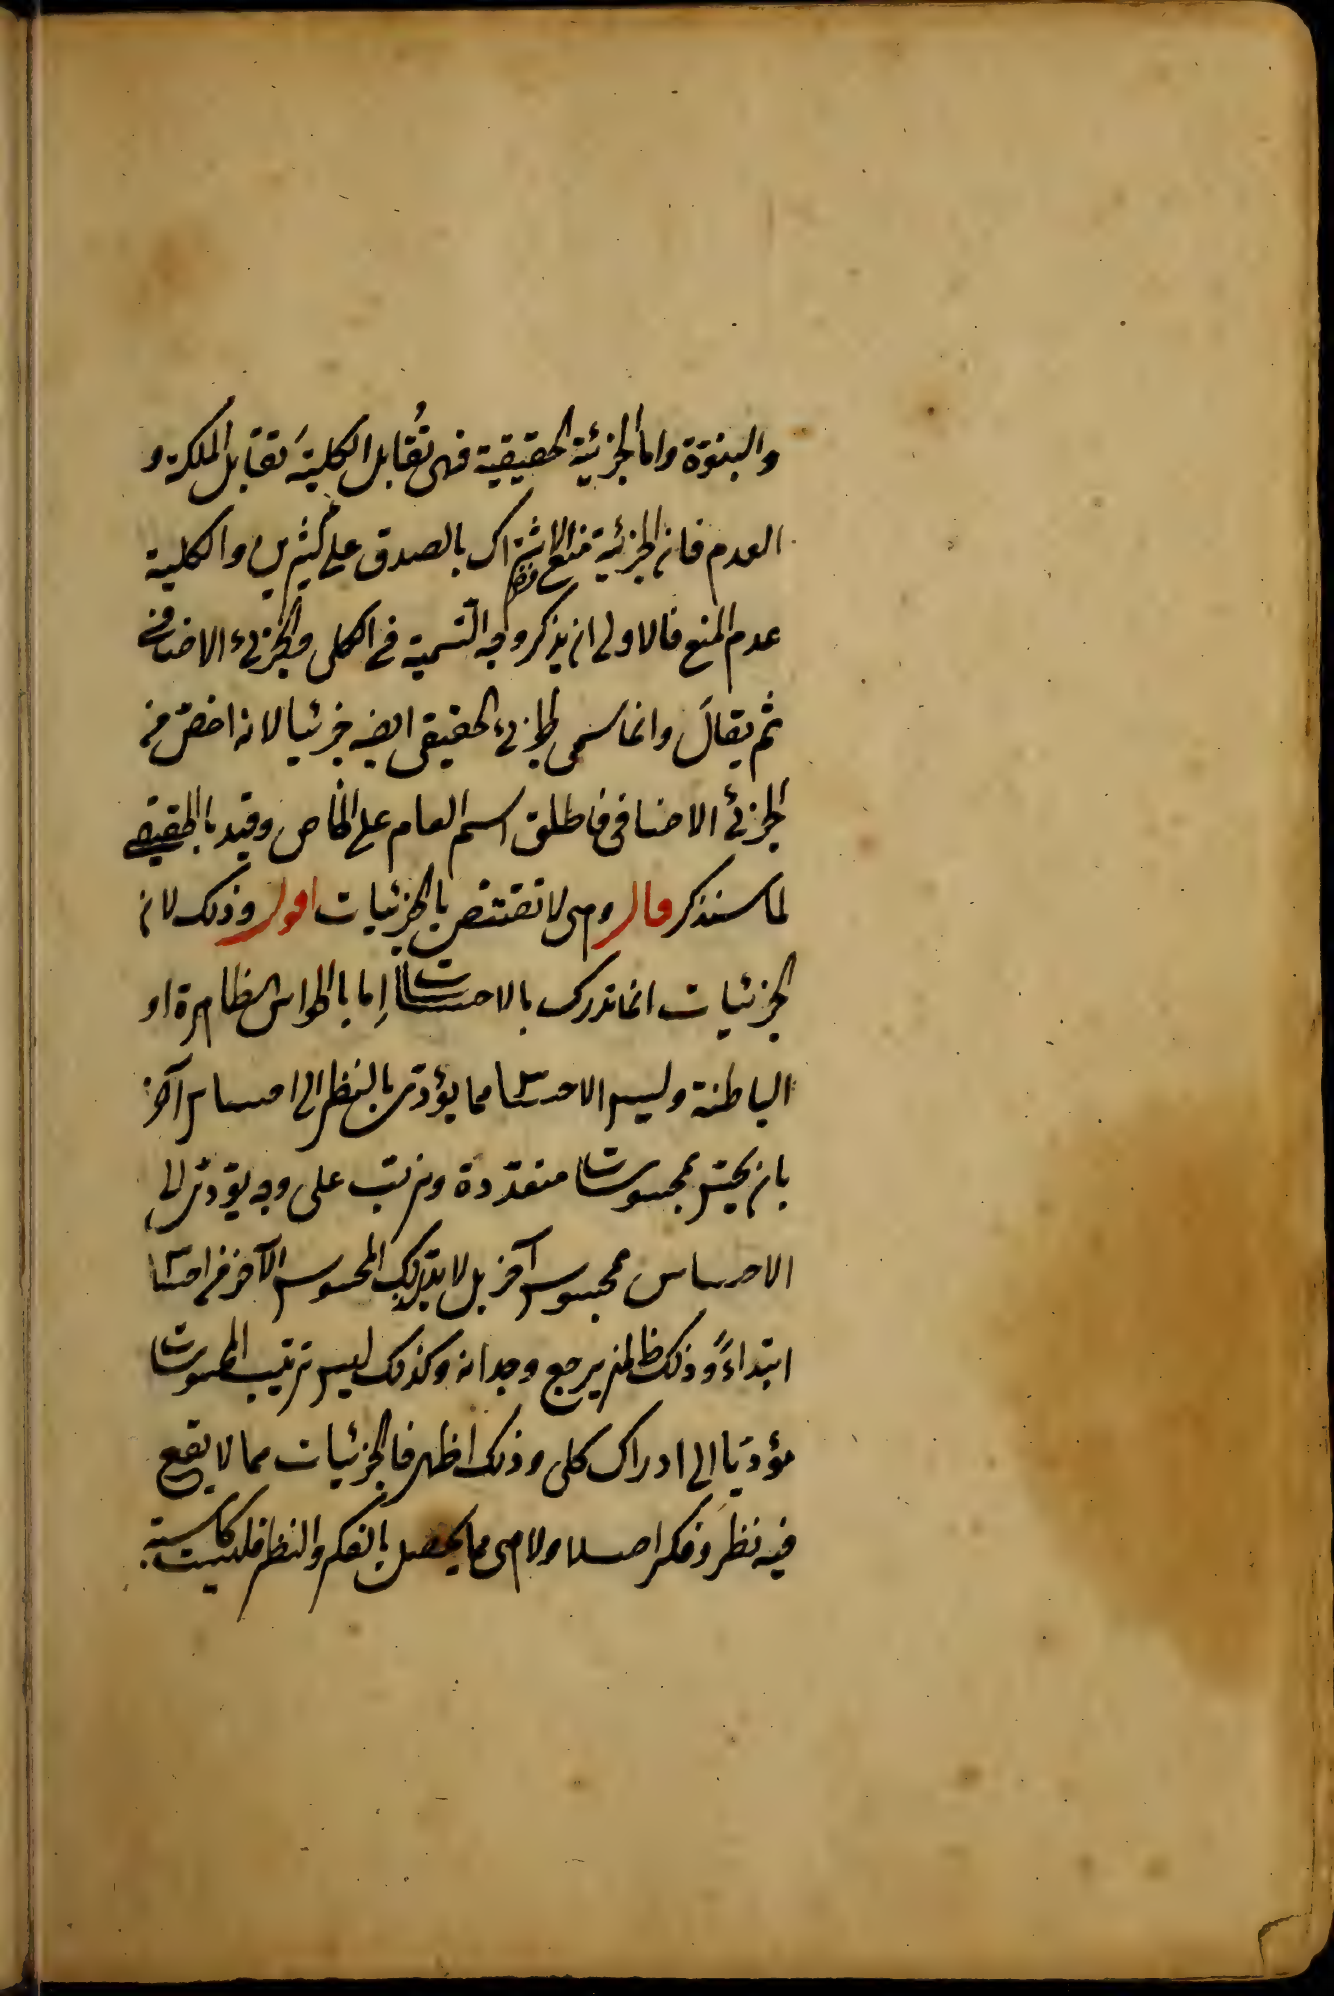 والبنوّة واما الجزئية الحقيقية فهى تُقابل الكلية تقابل الملكة و
العدم فان الجزئية منع الاشتراك بالصدق على كثيرين والكلية
عدم المنع فالاولى ان يذكر وجه التسمية فى الكلى والجزئى الاضافى
ثم يقال وانما سمى الجزئى الحقيقى ايضا جزئيا لانه اخصّ من
الجزئى الاضافى فاطلق اسم العام على الخاص وقيد بالحقيقى
لما سنذكر قال وهى لا تقتنص بالجزئيات اقول وذلك لان
الجزئيات انما تدرك بالاحساسات اِما بالحواس الظاهرة او
الباطنة وليس الاحساس مما يؤدّى بالنظر الى احساس آخر
بان يحسّ بمحسوسات متعدّدة وترتب على وجه يؤدّى الى
الاحساس بمحسوس آخر بل لا بدّ لذلك المحسوس الآخر من احساس
ابتداءً وذلك ظ لمن يرجع وجدانه وكذلك ليس ترتيب المحسوسات
مؤدّيا الى ادراك كلى وذلك اظهر فالجزئيات مما لا يقع
فيه نظر وفكر اصلا ولا هى مما يحصل بالفكر والنظر فليست كاسبة